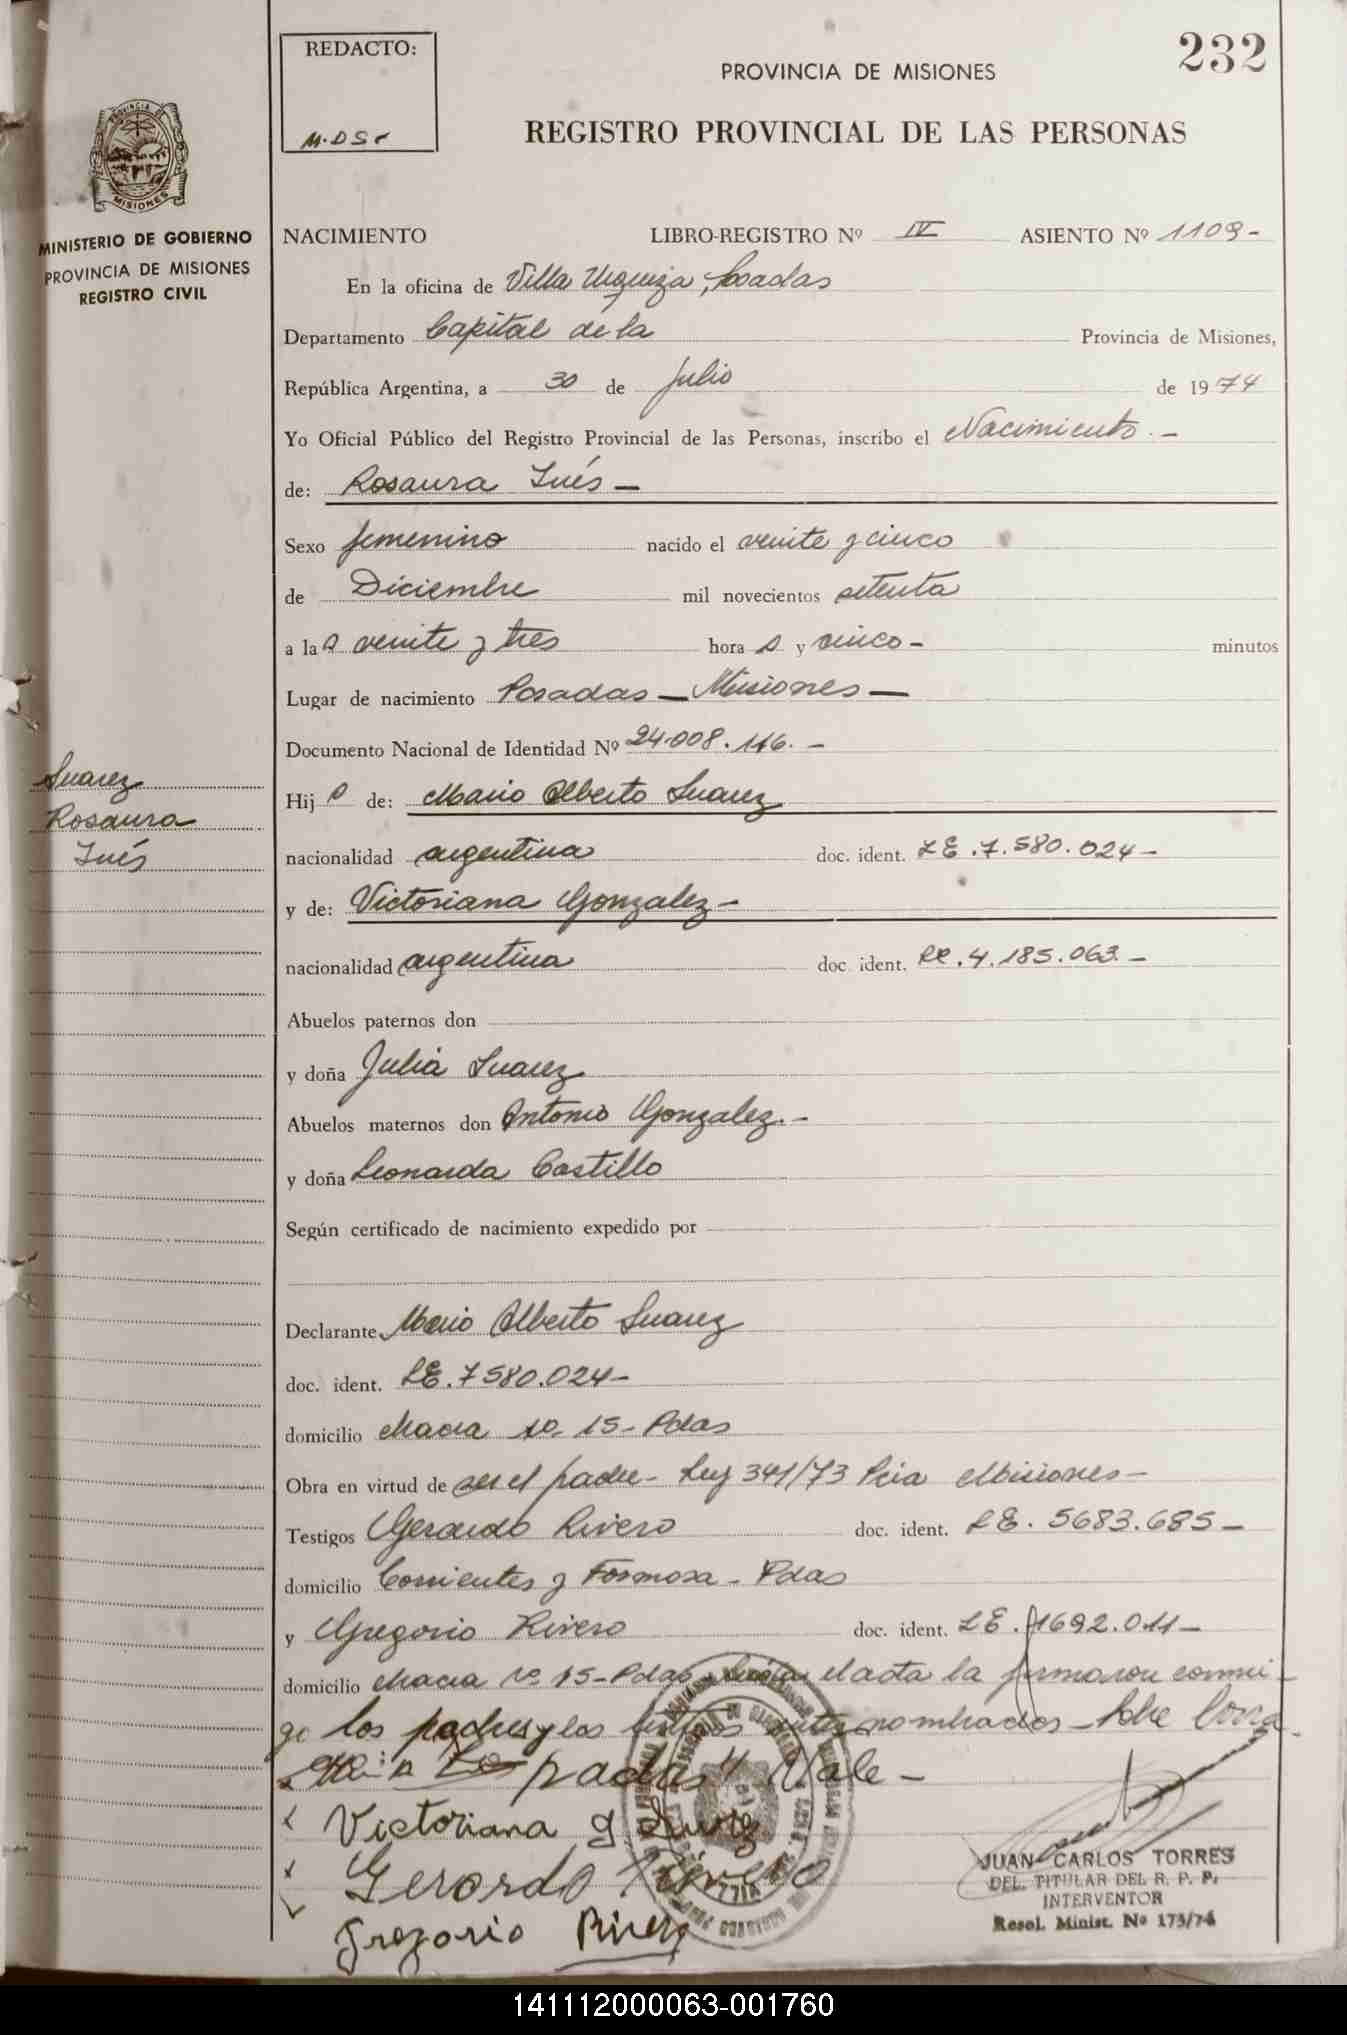 REDACTO:
M.DS
232
PROVINCIA DE MISIONES
REGISTRO PROVINCIAL DE LAS PERSONAS
PROVINCIA DE
MISIONES
MINISTERIO DE GOBIERNO
PROVINCIA DE MISIONES
REGISTRO CIVIL
NACIMIENTO LIBRO-REGISTRO Nº IV ASIENTO Nº 1109-
En la oficina de Villa Urquiza, Posadas
Departamento Capital de la Provincia de Misiones,
República Argentina, a 30 de Julio de 1974
Yo Oficial Público del Registro Provincial de las Personas, inscribo el Nacimiento.-
de: Rosaura Inés-
Sexo femenino nacido el veinte y cinco
de Diciembre mil novecientos setenta
a las veinte y tres horas y cinco- minutos
Lugar de nacimiento Posadas - Misiones -
Documento Nacional de Identidad Nº 24.008.116.-
Suarez
Rosaura
Inés
Hij de: Mario Alberto Suarez
nacionalidad argentina doc. ident. LE.7.580.024-
y de: Victoriana Gonzalez-
nacionalidad argentina doc. ident. 4.185.063.-
Abuelos paternos don
y doña Julia Suarez
Abuelos maternos don Antonio Gonzalez.-
y doña Leonarda Castillo
Según certificado de nacimiento expedido por
Declarante Mario Alberto Suarez
doc. ident. LE.7580.024-
domicilio Chacra 15- Pdas
Obra en virtud de ser el padre- Ley 341/73 Pcia Misiones-
Testigos Gerardo Rivero doc. ident. LE. 5683.685-
domicilio Corrientes y Formosa - Pdas
y Gregorio Rivero doc. ident. LE. 1692.011-
domicilio Chacra 15- Pdas, el acta la firmaron conmi-
go los padres y los testigos nombrados -
padres" Vale -
Victoriana g Suarez
Gerardo Rivero
Gregorio Rivero
JUAN CARLOS TORRES
DEL. TITULAR DEL R. P. P.
INTERVENTOR
Resol. Minist. Nº 175/74
141112000063-001760